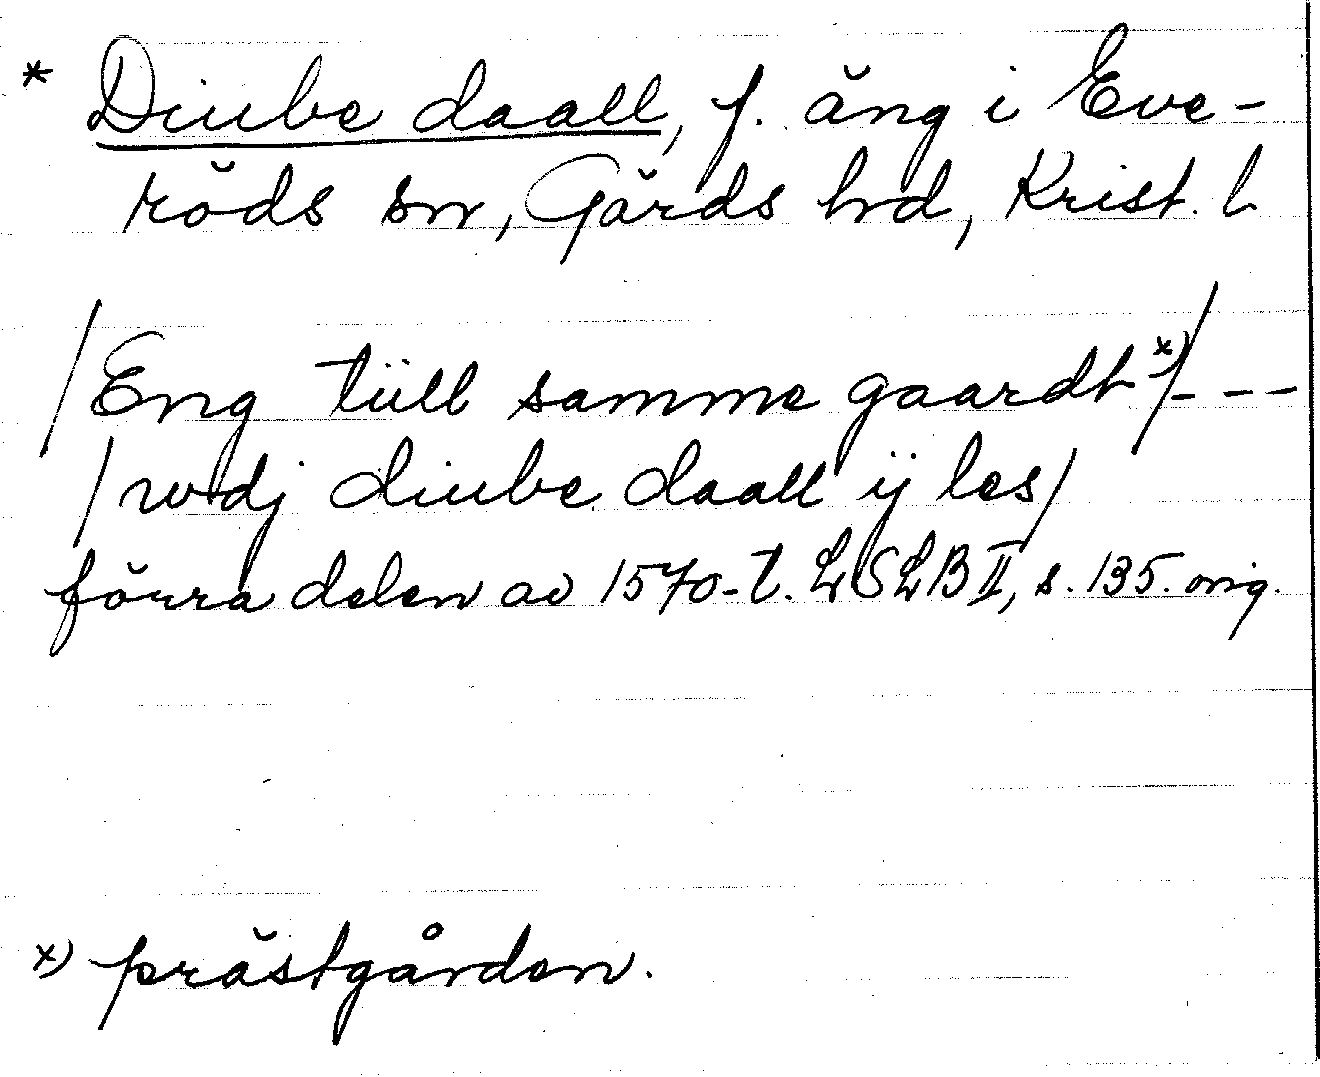 * Diube daall, f. äng i Eve-
röds sn, Gärds hd, Krist. l
/Eng tüll samme gaardt x)/ - - -
/wdj diube daall ij les/
förra delen av 1570-t. LSLB II, s. 135. orig.
x) prästgården.